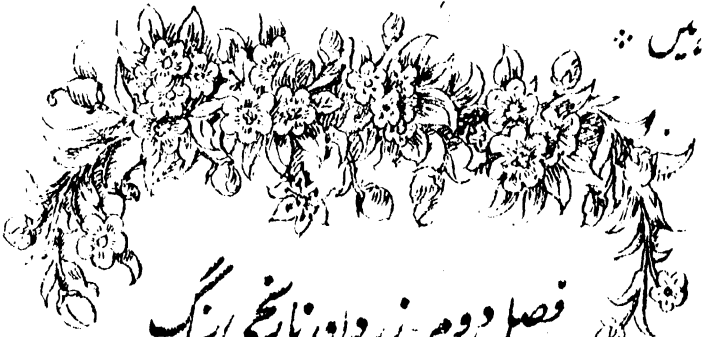 ہیں ⁘
فصل دوم۔ زرد اور نارنجی رنگ